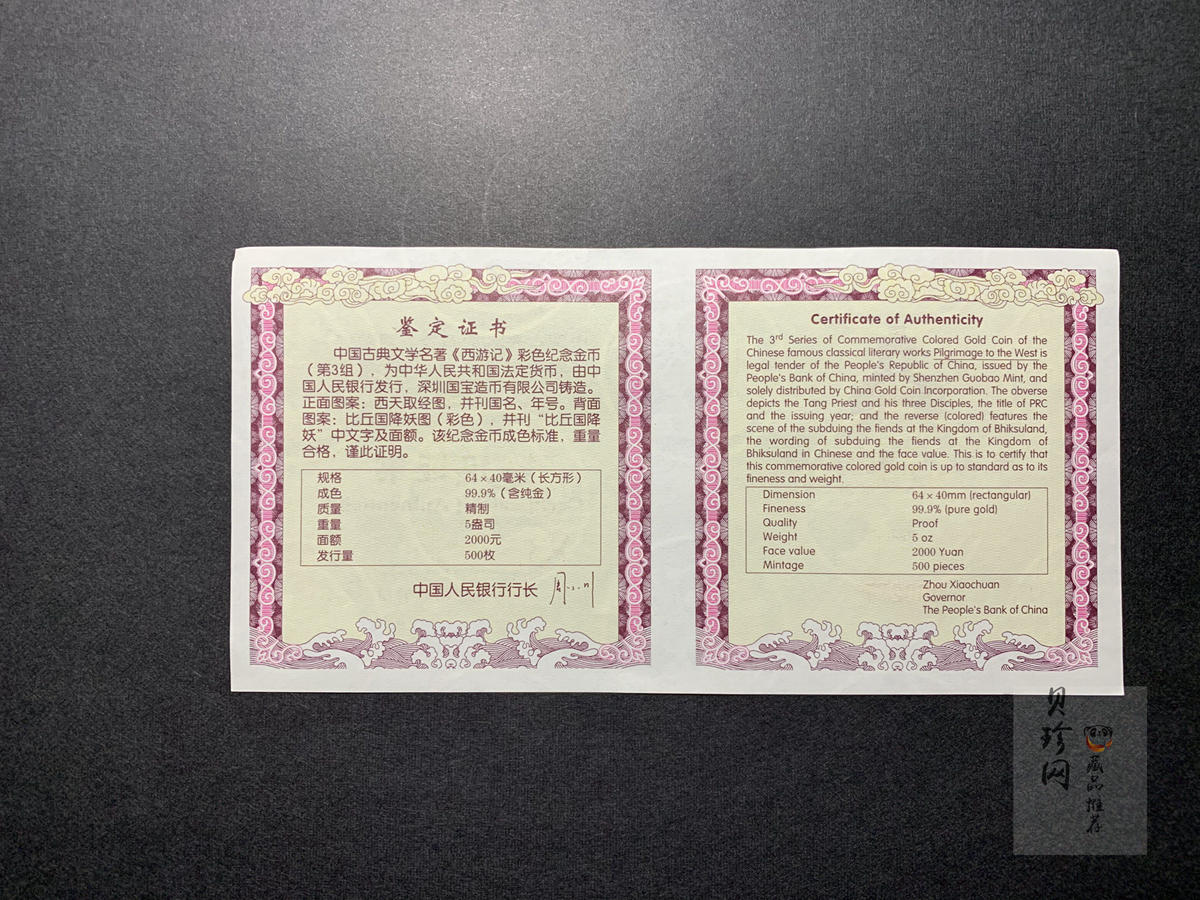 鉴定证书
中国古典文学名著《西游记》彩色纪念金币
（第3组），为中华人民共和国法定货币，由中
国人民银行发行，深圳国宝造币有限公司铸造。
正面图案：西天取经图，并刊国名、年号。背面
图案：比丘国降妖图（彩色），并刊“比丘国降
妖”中文字及面额。该纪念金币成色标准，重量
合格，谨此证明。
规格 64×40毫米（长方形）
成色 99.9%（含纯金）
质量 精制
重量 5盎司
面额 2000元
发行量 500枚
中国人民银行行长
Certificate of Authenticity
The 3rd Series of Commemorative Colored Gold Coin of the
Chinese famous classical literary works Pilgrimage to the West is
legal tender of the People's Republic of China, issued by the
People's Bank of China, minted by Shenzhen Guobao Mint, and
solely distributed by China Gold Coin Incorporation. The obverse
depicts the Tang Priest and his three Disciples, the title of PRC
and the issuing year; and the reverse (colored) features the
scene of the subduing the fiends at the Kingdom of Bhiksuland,
the wording of subduing the fiends at the Kingdom of
Bhiksuland in Chinese and the face value. This is to certify that
this commemorative colored gold coin is up to standard as to its
fineness and weight.
Dimension 64×40mm (rectangular)
Fineness 99.9% (pure gold)
Quality Proof
Weight 5 oz
Face value 2000 Yuan
Mintage 500 pieces
Zhou Xiaochuan
Governor
The People's Bank of China
贝珍网
藏品推荐